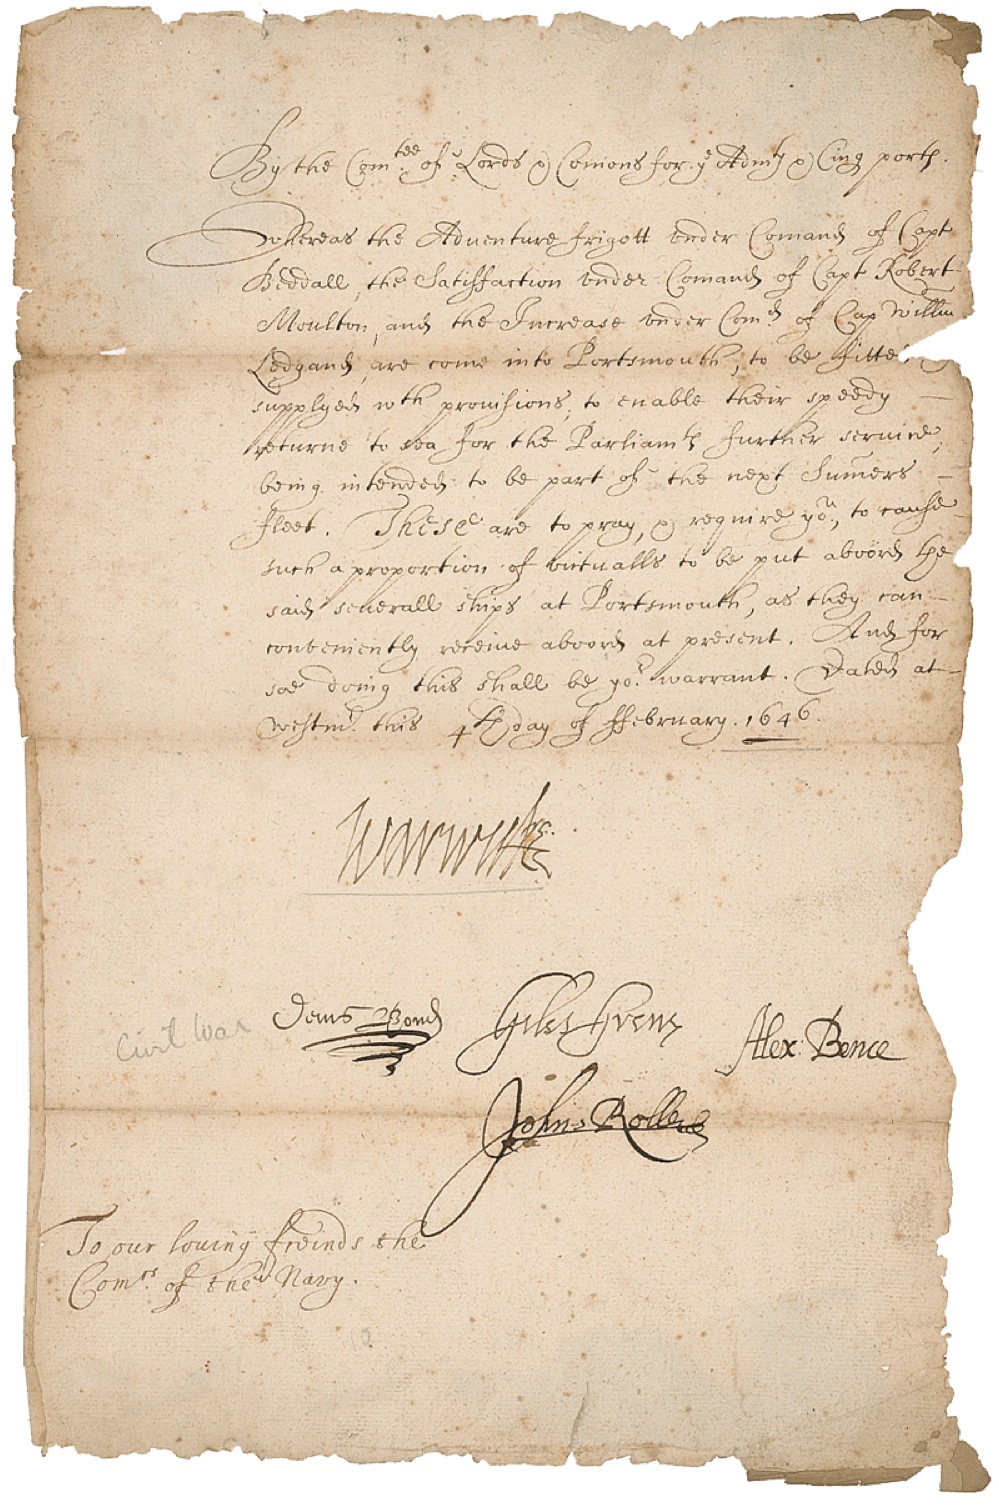 By the Com:tee of ye Lords & Comons for ye Admty & Cinq ports.
Whereas the Adventure frigott vnder Comand of Capt
Beddall, the Satisffaction vnder Comand of Capt Robert
Moulton, and the Increase vnder Comd of Cap Willm
Ledgand, are come into Portsmouth, to be fitted &
supplyed wth provisions, to enable their speedy
returne to sea for the Parliamts further service,
being intended to be part of the next Sumers
fleet. These are to pray, & require you, to cause
such a proportion of victualls to be put aboord the
said severall ships at Portsmouth, as they can
conveniently receive aboord at present. And for
soe doing this shall be yor warrant. Dated at
Westmr this 4th day of ffebruary. 1646.
Warwick
Denis Bond Giles Grene Alex: Bence
Civil War
John Rolle
To our loving freinds the
Comrs of the Navy.